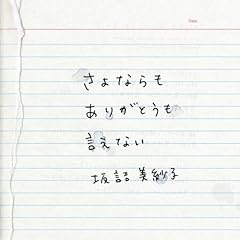 Date
さよならも
ありがとうも
言えてない
坂詰 美紗子